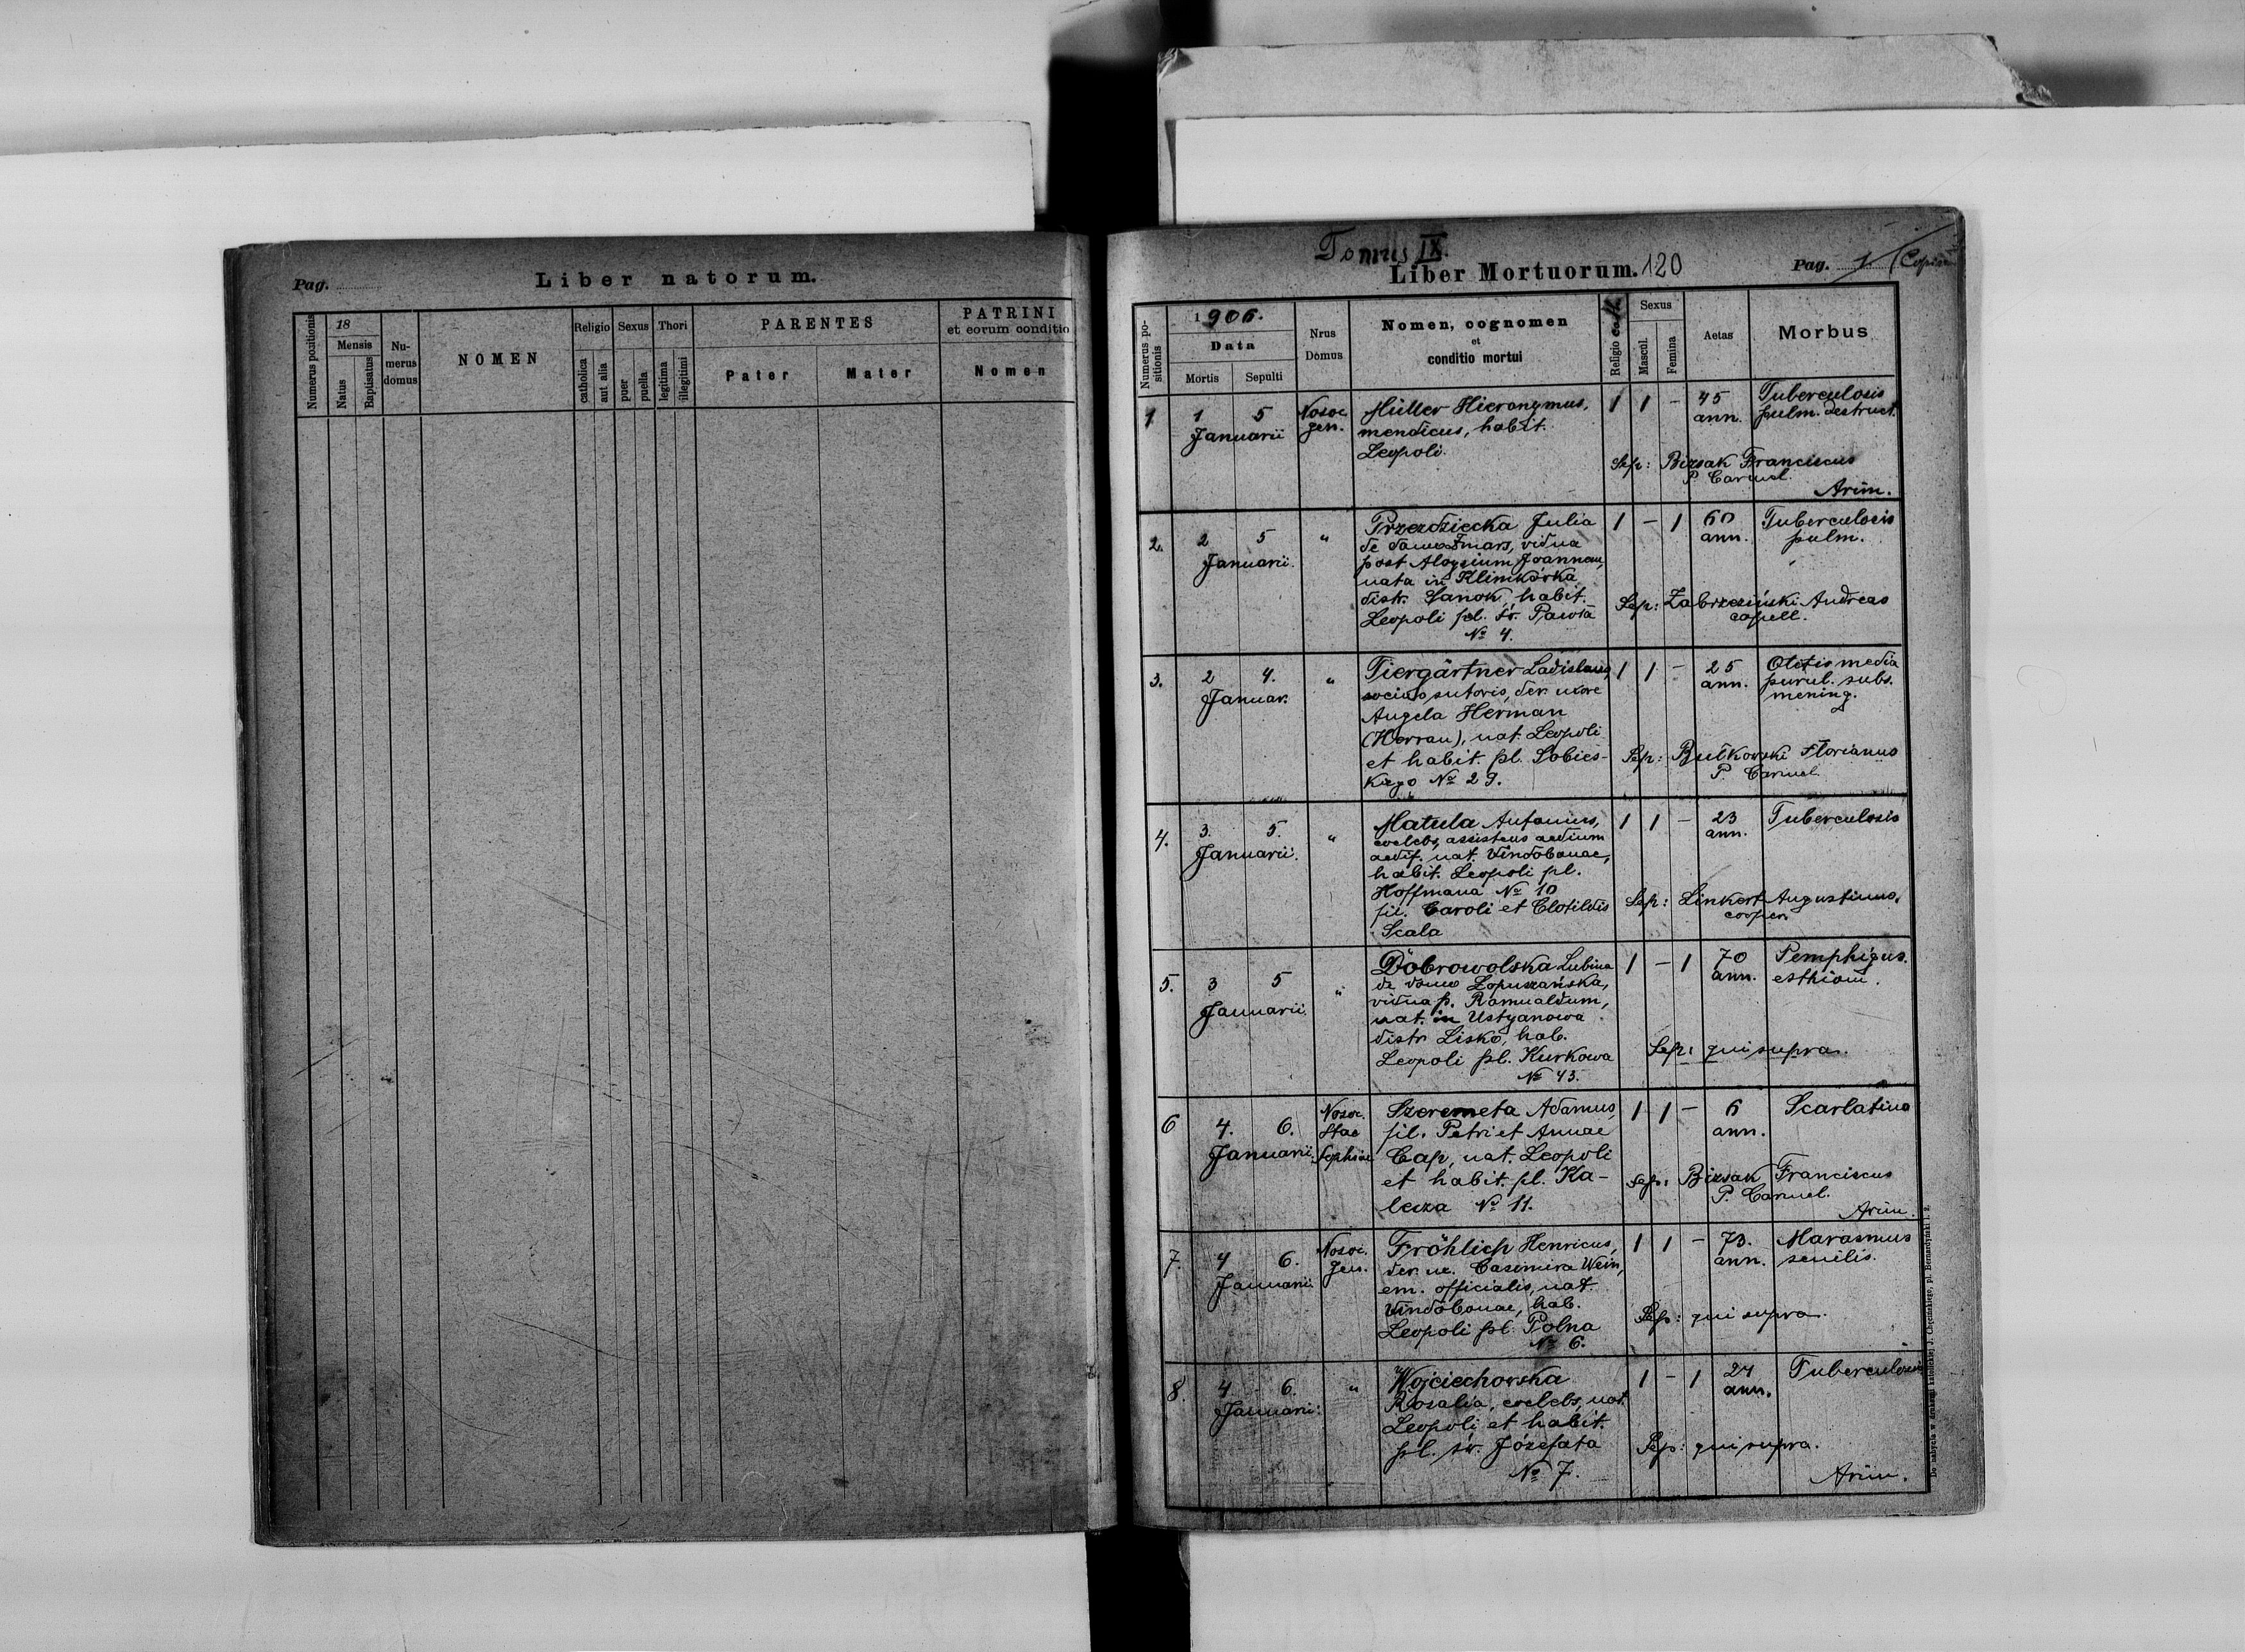 Pag.
Liber natorum.
Numerus positionis
18
Mensis
Natus
Baptisatus
Nu-
merus
domus
NOMEN
Religio
catholica
aut alia
Sexus
puer
puella
Thori
legitima
illegitimi
PARENTES
Pater
Mater
PATRINI
et eorum conditio
Nomen
Tomus IX.
Liber Mortuorum. 120
Pag. 1
Numerus po-
sitionis
1906.
Data
Mortis
Sepulti
Nrus
Domus
Nomen, cognomen
et
conditio mortui
Religio cath.
Sexus
Mascul.
Femina
Aetas
Morbus
1
1 5
Januarii
Nosoc.
gen.
Müller Hieronymus,
mendicus, habit.
Leopoli.
1 1 -
45
ann.
Tuberculosis
pulm. destruct.
Sep: Bizsak Franciscus
P. Carmel.
Arim.
2.
2 5
Januarii.
"
Przezdziecka Julia
de domo Smars, vidua
post Aloysium Joannem,
nata in Klimkówka
distr. Sanok, habit.
Leopoli pl. św. Pawła
No 4.
1 - 1
60
ann.
Tuberculosis
pulm.
Sep: Zabrzesiński Andreas
capell.
3.
2 4.
Januar.
"
Tiergärtner Ladislaus,
socius sutoris, der. uxore
Angela Herman
(Herran), nat. Leopoli
et habit. pl. Sobies-
kiego No 29.
1 1 -
25
ann.
Otitis media
purul. subs.
mening.
Sep: Bułkowski Florianus
P. Carmel.
4.
3. 5.
Januarii.
"
Matula Antonius,
coelebs, assistens aedium
aedif. nat. Vindobonae,
habit. Leopoli pl.
Hoffmana No 10
fil. Caroli et Clotildis
Scala
1 1 -
23
ann.
Tuberculosis
Sep: Linkert Augustinus,
cooper.
5.
3 5
Januarii.
"
Dobrowolska Lubina
de domo Łopuszańska,
vidua p. Romualdum,
nat. in Ustyanowa
distr. Lisko, hab.
Leopoli pl. Kurkowa
No 43.
1 - 1
70
ann.
Pemphigus.
esthiom.
Sep: qui supra.
6
4. 6.
Januarii.
Nosoc.
Stae
Sophiae
Szeremeta Adamus,
fil. Petri et Annae
Cap, nat. Leopoli
et habit. pl. Ka-
lecza No 11.
1 1 -
6
ann.
Scarlatina
Sep: Bizsak Franciscus
P. Carmel.
Arim.
7.
4 6.
Januarii
Nosoc.
gen.
Fröhlich Henricus,
der. ux. Casimira Wein,
em. officialis, nat.
Vindobonae, hab.
Leopoli pl. Polna
No 6.
1 1 -
73.
ann.
Marasmus
senilis.
Sep: qui supra.
8.
4 6.
Januarii.
"
Wojciechowska
Rosalia, coelebs, nat.
Leopoli et habit.
pl. św. Józefata
No 7.
1 - 1
24
ann.
Tuberculosis
Sep: qui supra.
Arim.
Do nabycia w drukarni katolickiej J. Chęcińskiego, pl. Bernardyński l. 2.